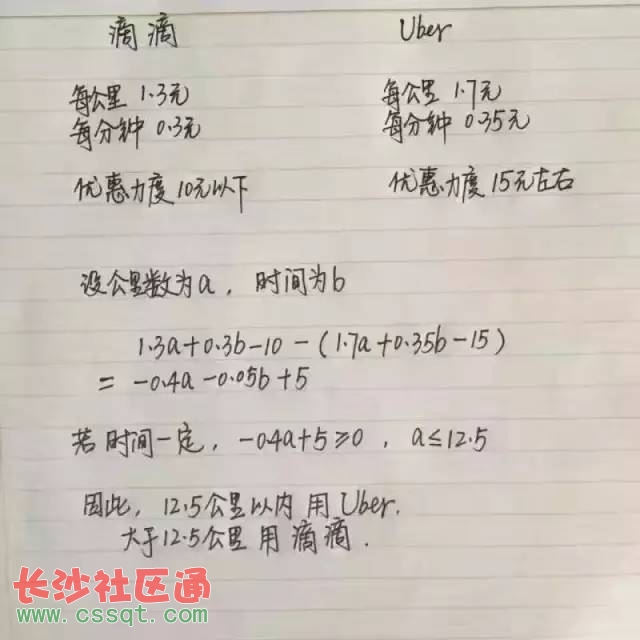 滴滴 Uber
每公里 1.3元 每公里 1.7元
每分钟 0.3元 每分钟 0.35元
优惠力度10元以下 优惠力度15元左右
设公里数为a，时间为b
1.3a+0.3b-10-(1.7a+0.35b-15)
= -0.4a-0.05b+5
若时间一定，-0.4a+5≥0，a≤12.5
因此，12.5公里以内用Uber.
大于12.5公里用滴滴.
长沙社区通
www.cssqt.com